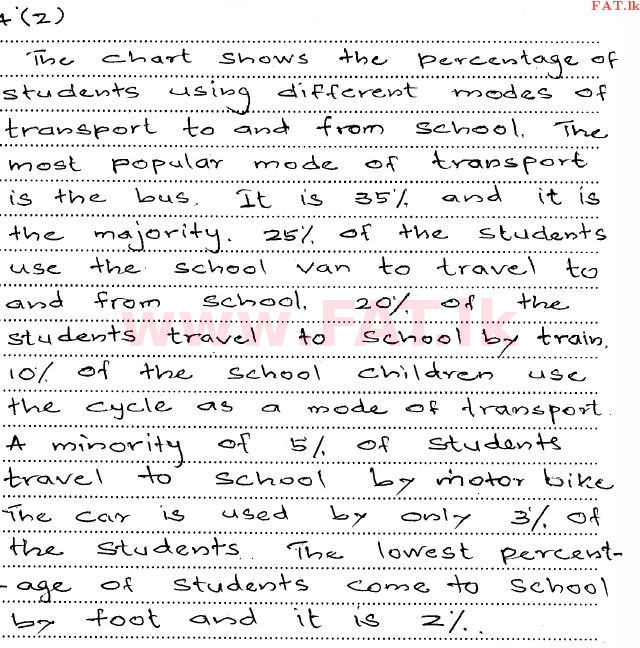 FAT.lk
4 (2)
The chart shows the percentage of
students using different modes of
transport to and from school. The
most popular mode of transport
is the bus. It is 35% and it is
the majority. 25% of the students
use the school van to travel to
and from school. 20% of the
www.FAT.lk
students travel to school by train.
10% of the school children use
the cycle as a mode of transport.
A minority of 5% of students
travel to school by motor bike
The car is used by only 3% of
the students. The lowest percent-
-age of students come to school
by foot and it is 2%.